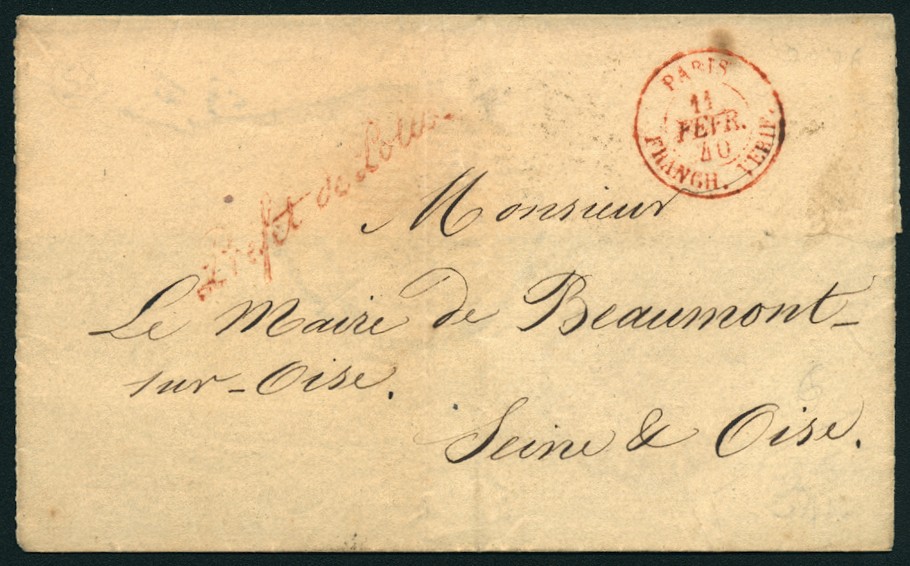 PARIS
11
FEVR.
40
FRANCH. VERIF.
Préfet de Police
Monsieur
Le Maire de Beaumont-
sur-Oise.
Seine & Oise.